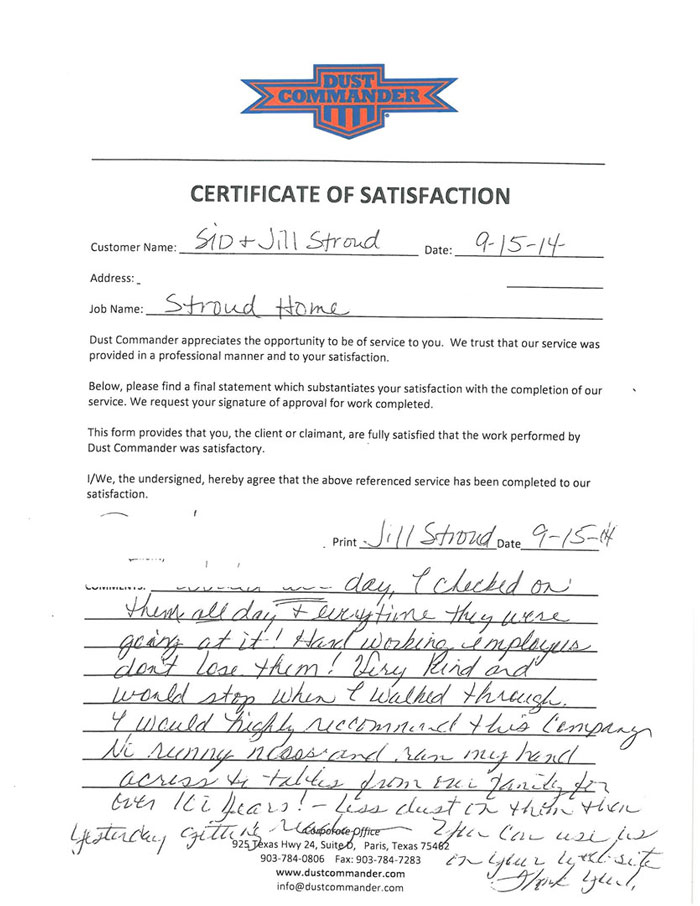 DUST
COMMANDER
CERTIFICATE OF SATISFACTION
Customer Name: SID + Jill Stroud Date: 9-15-14
Address:
Job Name: Stroud Home
Dust Commander appreciates the opportunity to be of service to you. We trust that our service was
provided in a professional manner and to your satisfaction.
Below, please find a final statement which substantiates your satisfaction with the completion of our
service. We request your signature of approval for work completed.
This form provides that you, the client or claimant, are fully satisfied that the work performed by
Dust Commander was satisfactory.
I/We, the undersigned, hereby agree that the above referenced service has been completed to our
satisfaction.
Print Jill Stroud Date 9-15-14
day, I checked on
them all day + everytime they were
going at it! Hard working employees
don't lose them! Very kind and
would stop when I walked through.
I would highly recommend this Company
runny and ran my hand
across tables from our family for
over years! - less dust on them then
yesterday You can use us
Corporate Office
on your website
925 Texas Hwy 24, Suite D, Paris, Texas 75462
Thank you,
903-784-0806 Fax: 903-784-7283
www.dustcommander.com
info@dustcommander.com